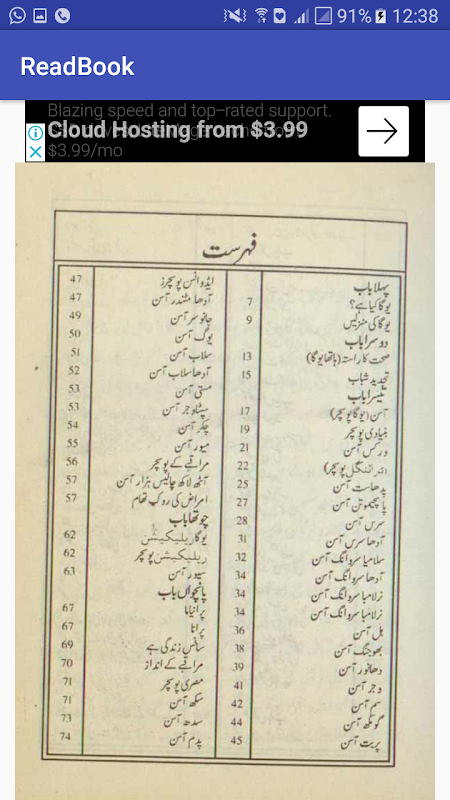 91% 12:38
ReadBook
Blazing speed and top-rated support.
Cloud Hosting from $3.99
$3.99/mo
فہرست
پہلا باب
یوگا کیا ہے؟ 7
یوگا کی منزلیں 9
دوسرا باب
صحت کا راستہ (ہاتھا یوگا) 13
تجدید شباب 15
تیسرا باب
آسن (یوگا پوسچر) 17
بنیادی پوسچر 19
ورکس آسن 21
(ٹرائنگل پوسچر) 22
پدھاست آسن 25
پاچھموتن آسن 27
سرس آسن 28
آدھا سرس آسن 31
سلامبا سروانگ آسن 32
آدھا سروانگ آسن 34
نرلامبا سروانگ آسن 34
نرلامبا سروانگ آسن 34
ہل آسن 36
بھوجنگ آسن 38
دھانور آسن 39
وجر آسن 41
سم آسن 42
گومکھ آسن 44
پربت آسن 45
ایڈوانس پوسچرز 47
آدھا مشندر آسن 47
جانو سر آسن 49
یوگ آسن 50
سلاب آسن 51
آدھا سلاب آسن 52
متسی آسن 53
سپتاوجر آسن 53
چکر آسن 54
میور آسن 55
مراقبے کے پوسچر 56
آٹھ لاکھ چالیس ہزار آسن 57
امراض کی روک تھام 57
چوتھا باب
یوگا ریلیکسیشن 62
ریلیکسیشن پوسچر 62
سیور آسن 63
پانچواں باب
پرانایا 67
پرانا 67
سانس زندگی ہے 69
مراقبے کے انداز 70
مصری پوسچر 71
سکھ آسن 71
سدھ آسن 73
پدم آسن 74